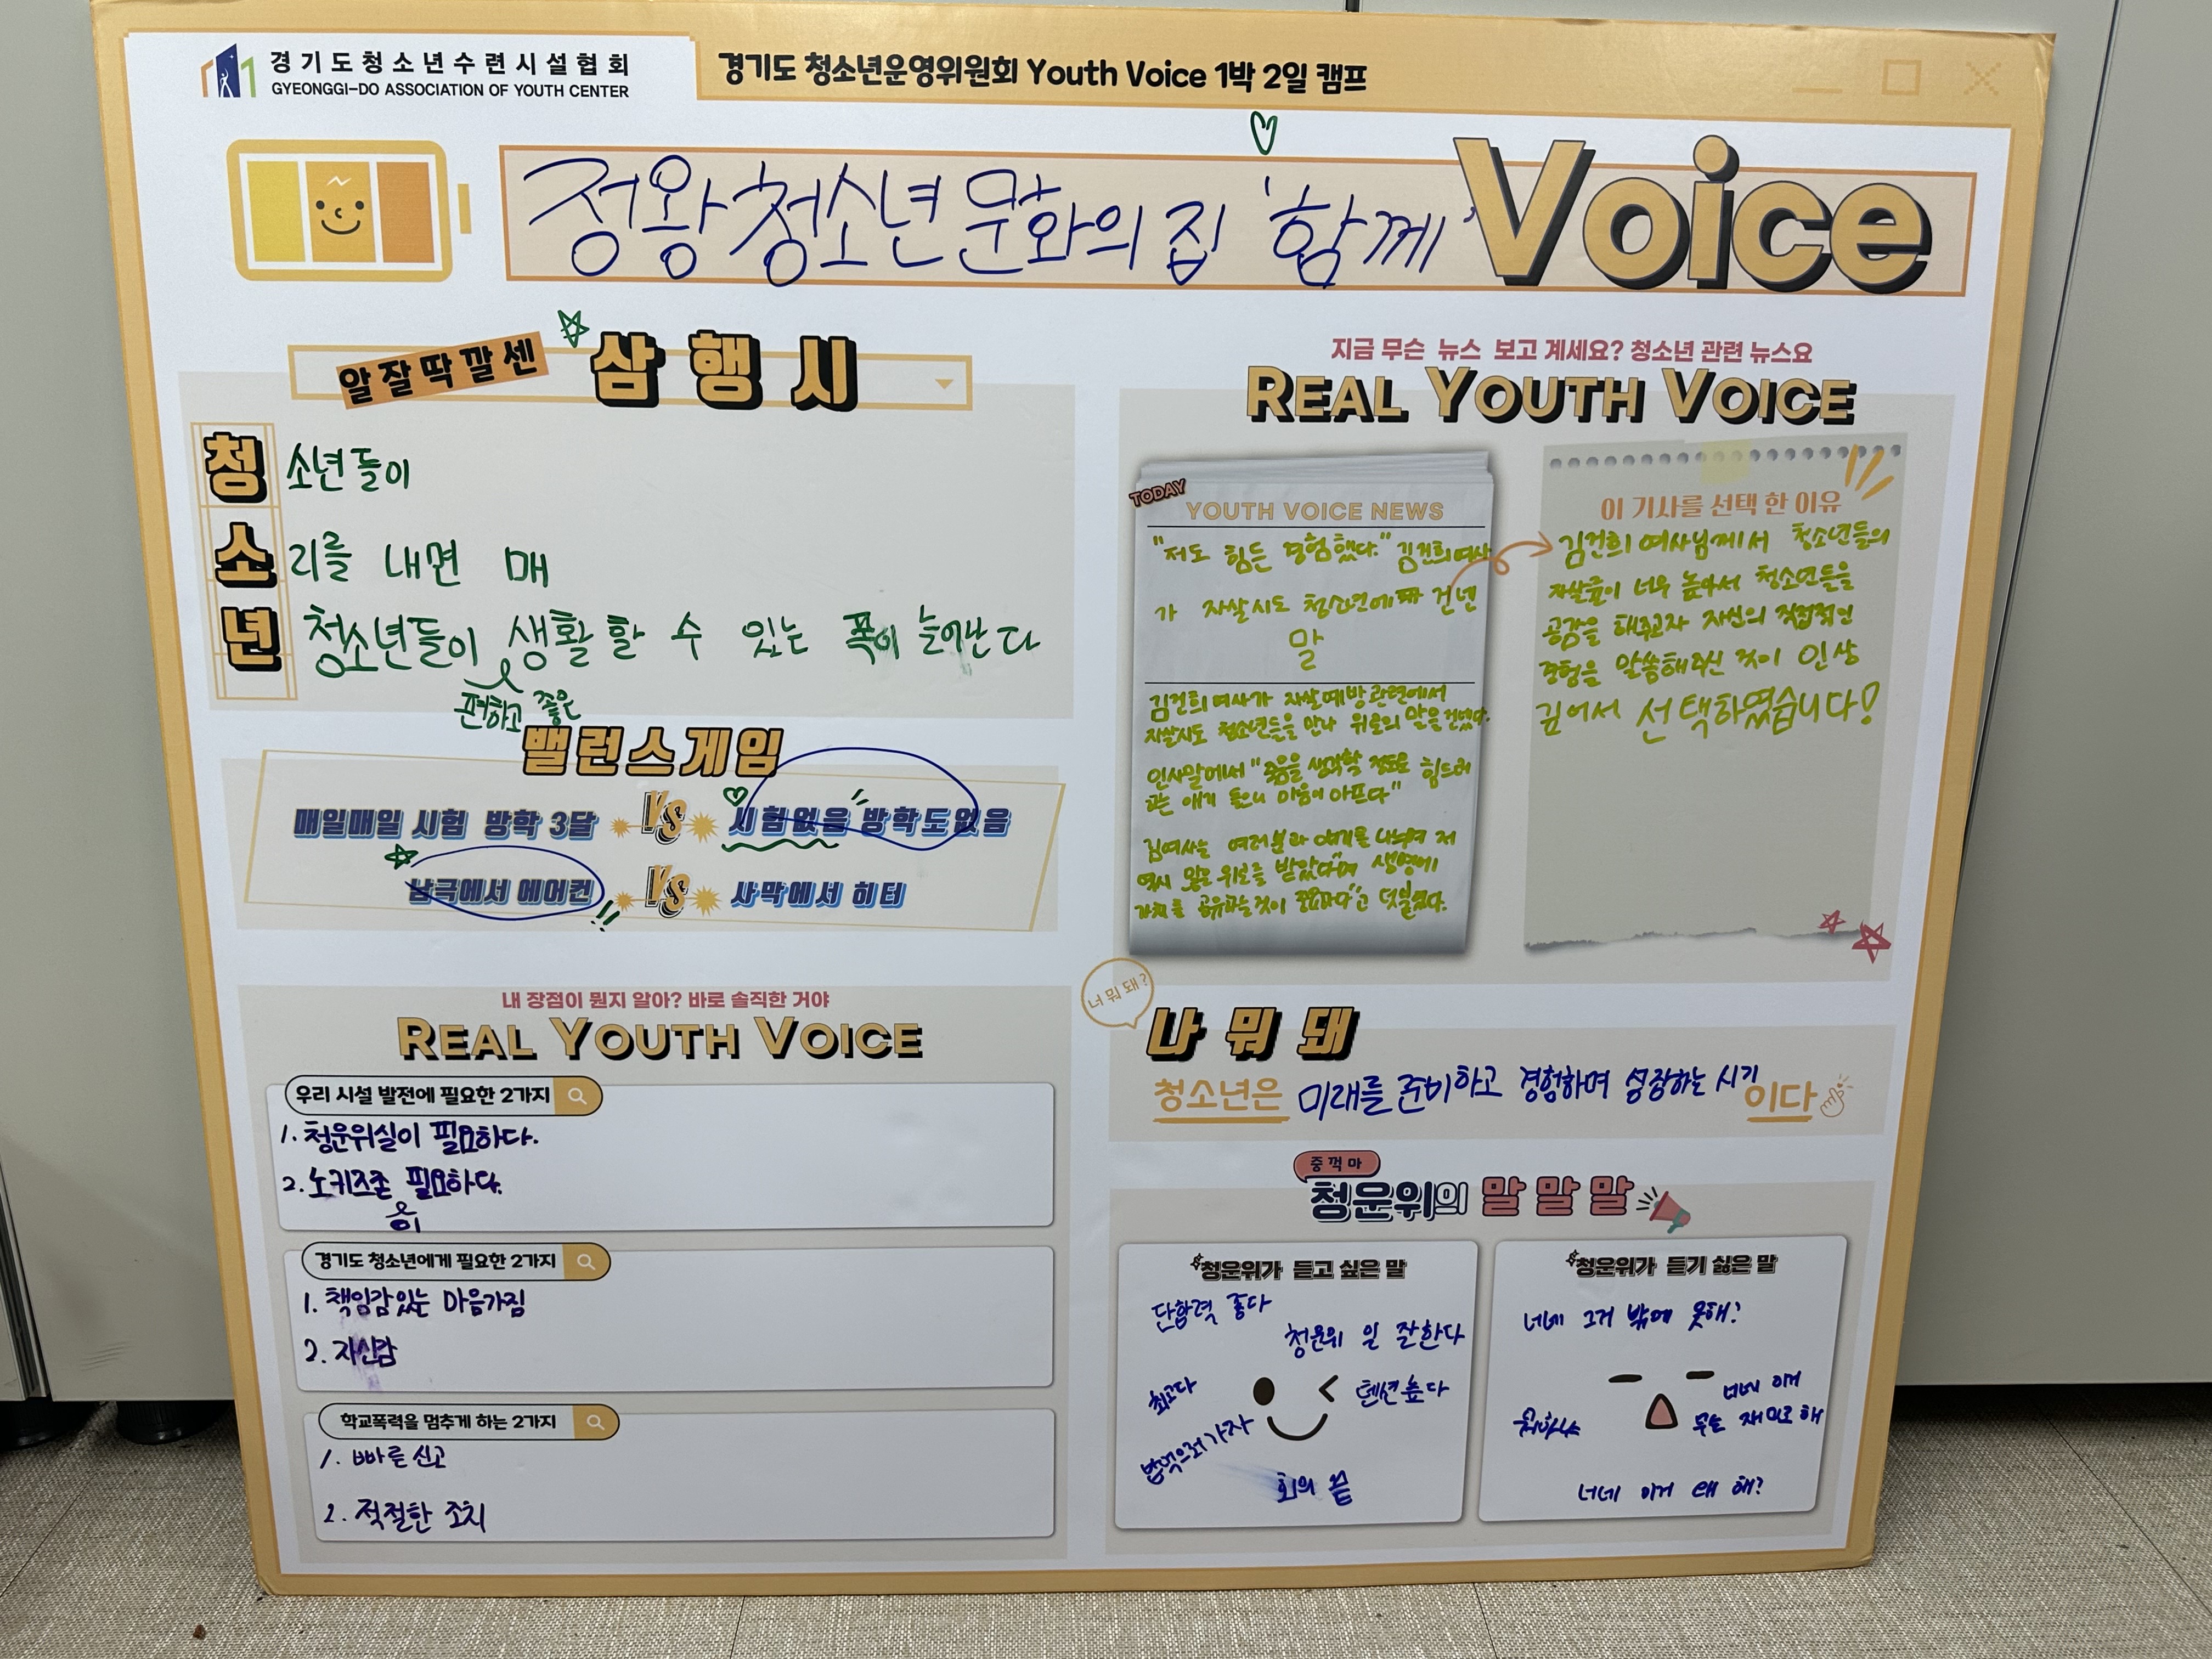 경기도청소년수련시설협회
GYEONGGI-DO ASSOCIATION OF YOUTH CENTER
경기도 청소년운영위원회 Youth Voice 1박 2일 캠프
정왕청소년문화의집 '함께' Voice
알잘딱깔센 삼행시
청 소년들이
소 리를 내면 매
년 청소년들이 생활할 수 있는 폭이 늘어난다
편하고 좋은
밸런스게임
매일매일 시험 방학 3달 VS 시험없음 방학도없음
남극에서 에어컨 VS 사막에서 히터
내 장점이 뭔지 알아? 바로 솔직한 거야
REAL YOUTH VOICE
우리 시설 발전에 필요한 2가지
1. 청운위실이 필요하다.
2. 노키즈존 필요하다.
이
경기도 청소년에게 필요한 2가지
1. 책임감있는 마음가짐
2. 자신감
학교폭력을 멈추게 하는 2가지
1. 빠른 신고
2. 적절한 조치
지금 무슨 뉴스 보고 계세요? 청소년 관련 뉴스요
REAL YOUTH VOICE
TODAY
YOUTH VOICE NEWS
"저도 힘든 경험했다." 김건희여사
가 자살시도 청소년에 건넨
말
김건희여사가 자살예방관련에서
자살시도 청소년들을 만나 위로의 말을 건넸다.
인사말에서 "죽음을 생각할 정도로 힘드러
하는 얘기 들으니 마음이 아프다"
김여사는 여러분과 얘기를 나누며 저
역시 위로를 받았다"며 생명에
가치를 공유하는것이 중요하다"고 덧붙였다.
이 기사를 선택 한 이유
김건희여사님께서 청소년들의
자살률이 너무 높아서 청소년들을
공감을 해주고자 자신의 직접적인
경험을 말씀해주신 것이 인상
깊어서 선택하였습니다!
너 뭐 돼?
나 뭐 돼
청소년은 미래를 준비하고 경험하며 성장하는 시기 이다
중꺽마
청운위의 말말말
청운위가 듣고 싶은 말
단합력 좋다
청운위 일 잘한다
최고다
텐션높다
밥먹으러가자
회의 끝
청운위가 듣기 싫은 말
너네 그거 밖에 못해?
뭐하냐
너네 이거
무슨 재미로 해
너네 이거 왜 해?